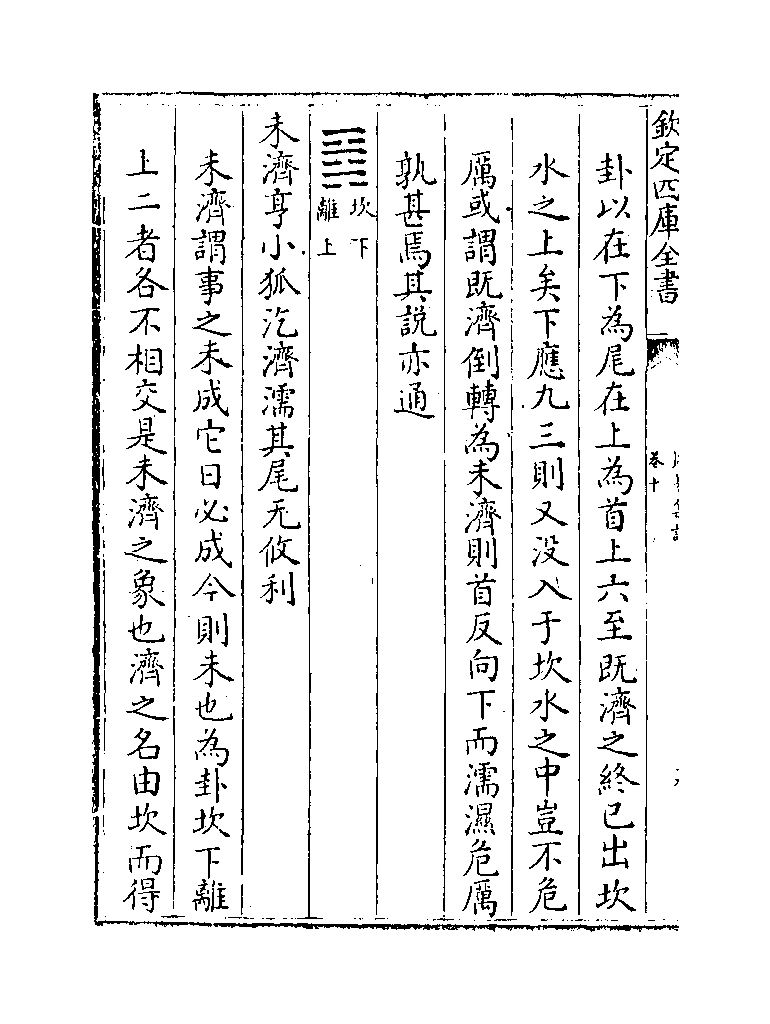 欽定四庫全書
卷十
卦以在下為尾在上為首上六至既濟之終已出坎
水之上矣下應九三則又没入于坎水之中豈不危
厲或謂既濟倒轉為未濟則首反向下而濡濕危厲
孰甚焉其説亦通
䷿
坎下
離上
未濟亨小狐汔濟濡其尾无攸利
未濟謂事之未成它日必成今則未也為卦坎下離
上二者各不相交是未濟之象也濟之名由坎而得